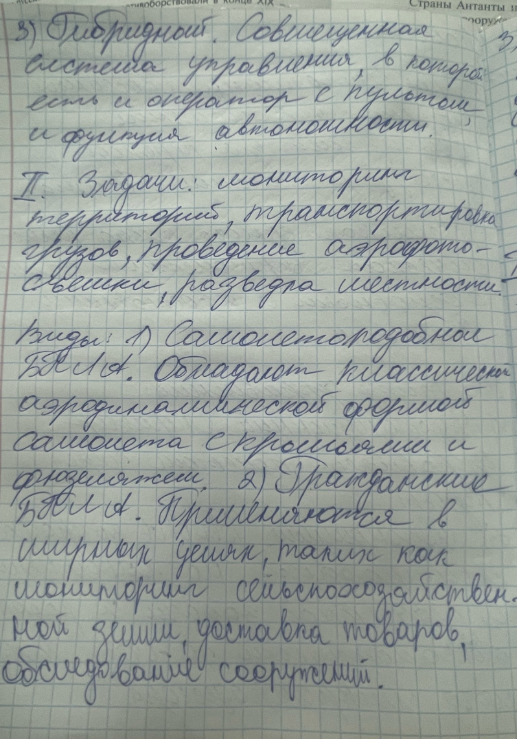 Страны Антанты
3) Гибридной. Совмещенная
система управления, в которой
есть и оператор с пультом,
и функция автономности.
II. Задачи: мониторинг
территорий, транспортировка
грузов, проведение аэрофото-
съемки, разведка местности.
Виды: 1) Самолетоподобное
БПЛА. Обладают классической
аэродинамической формой
самолета с крыльями и
фюзеляжем. 2) Гражданские
БПЛА. Применяются в
мирных целях, таких как
мониторинг сельскохозяйствен.
ной земли, доставка товаров,
обследование сооружений.